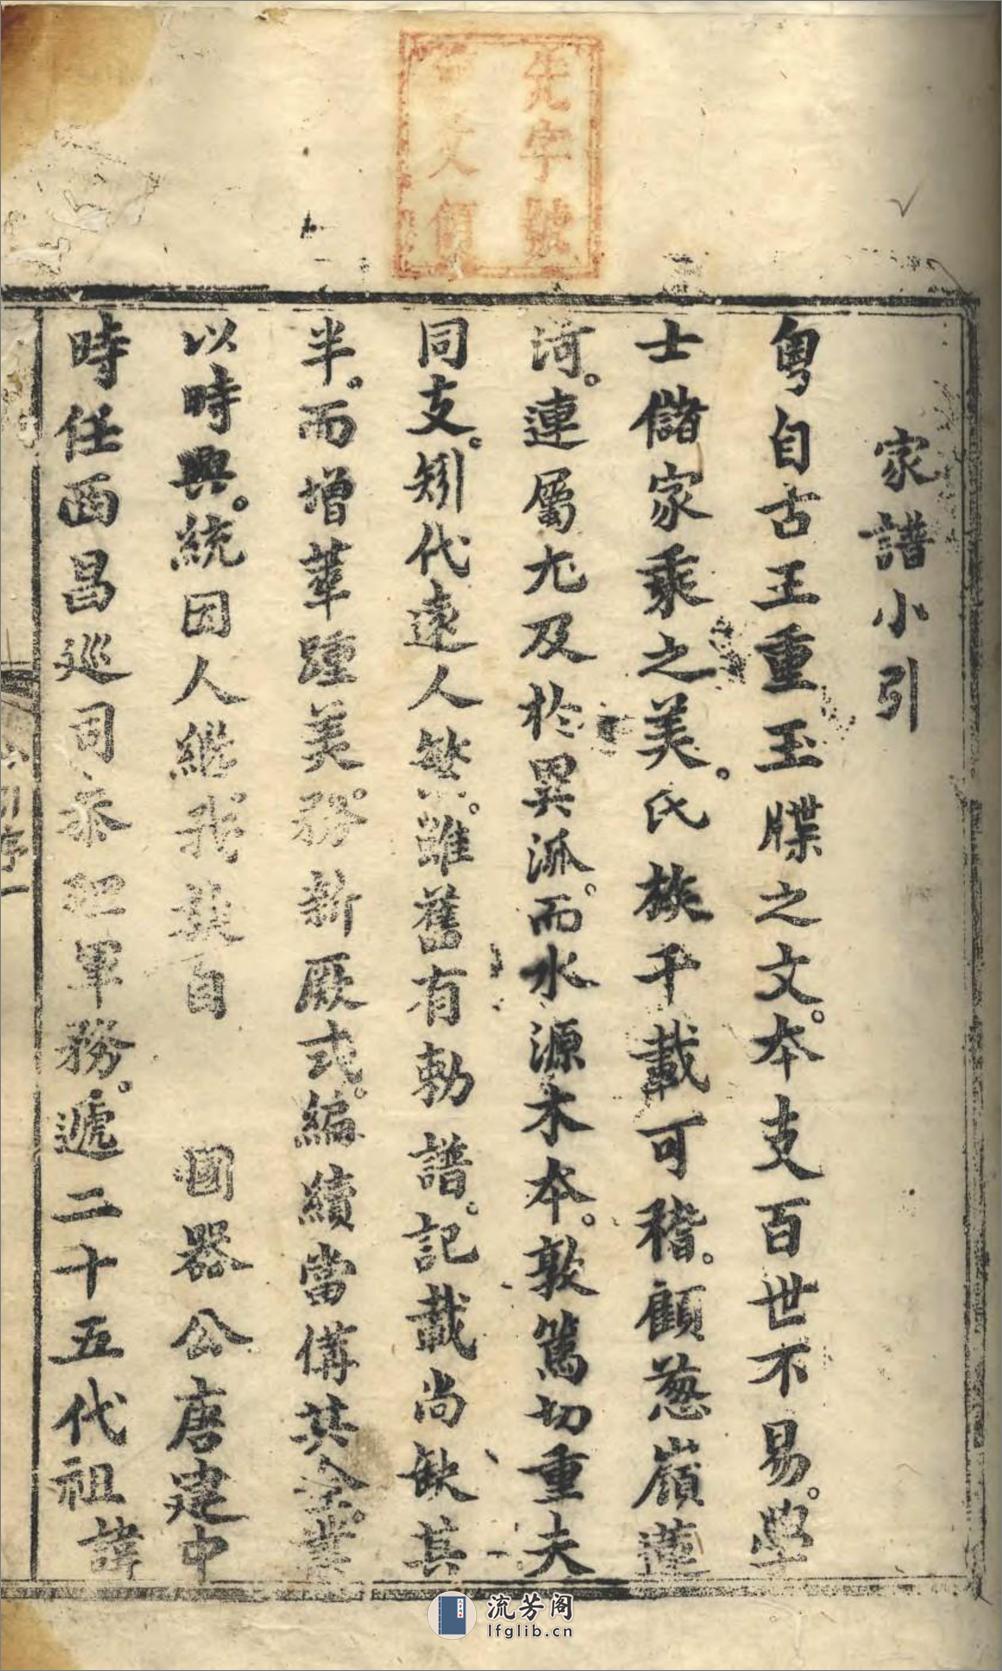 先字號
文領
家譜小引
粵自古王重玉牒之文。本支百世不易。學
士儲家乘之美。氏族千載可稽。顧葱嶺蓮
河。連屬尤及於異泒。而水源木本。敦篤切重夫
同支。矧代遠人繁。雖舊有勅譜。記載尚缺其
半。而增華踵美。務新厥式。編續當僃其全。業
以時興。統因人繼我龔自 國器公唐建中
時任西昌巡司叅理軍務。遞二十五代祖諱
小引序一
流芳阁
lfglib.cn